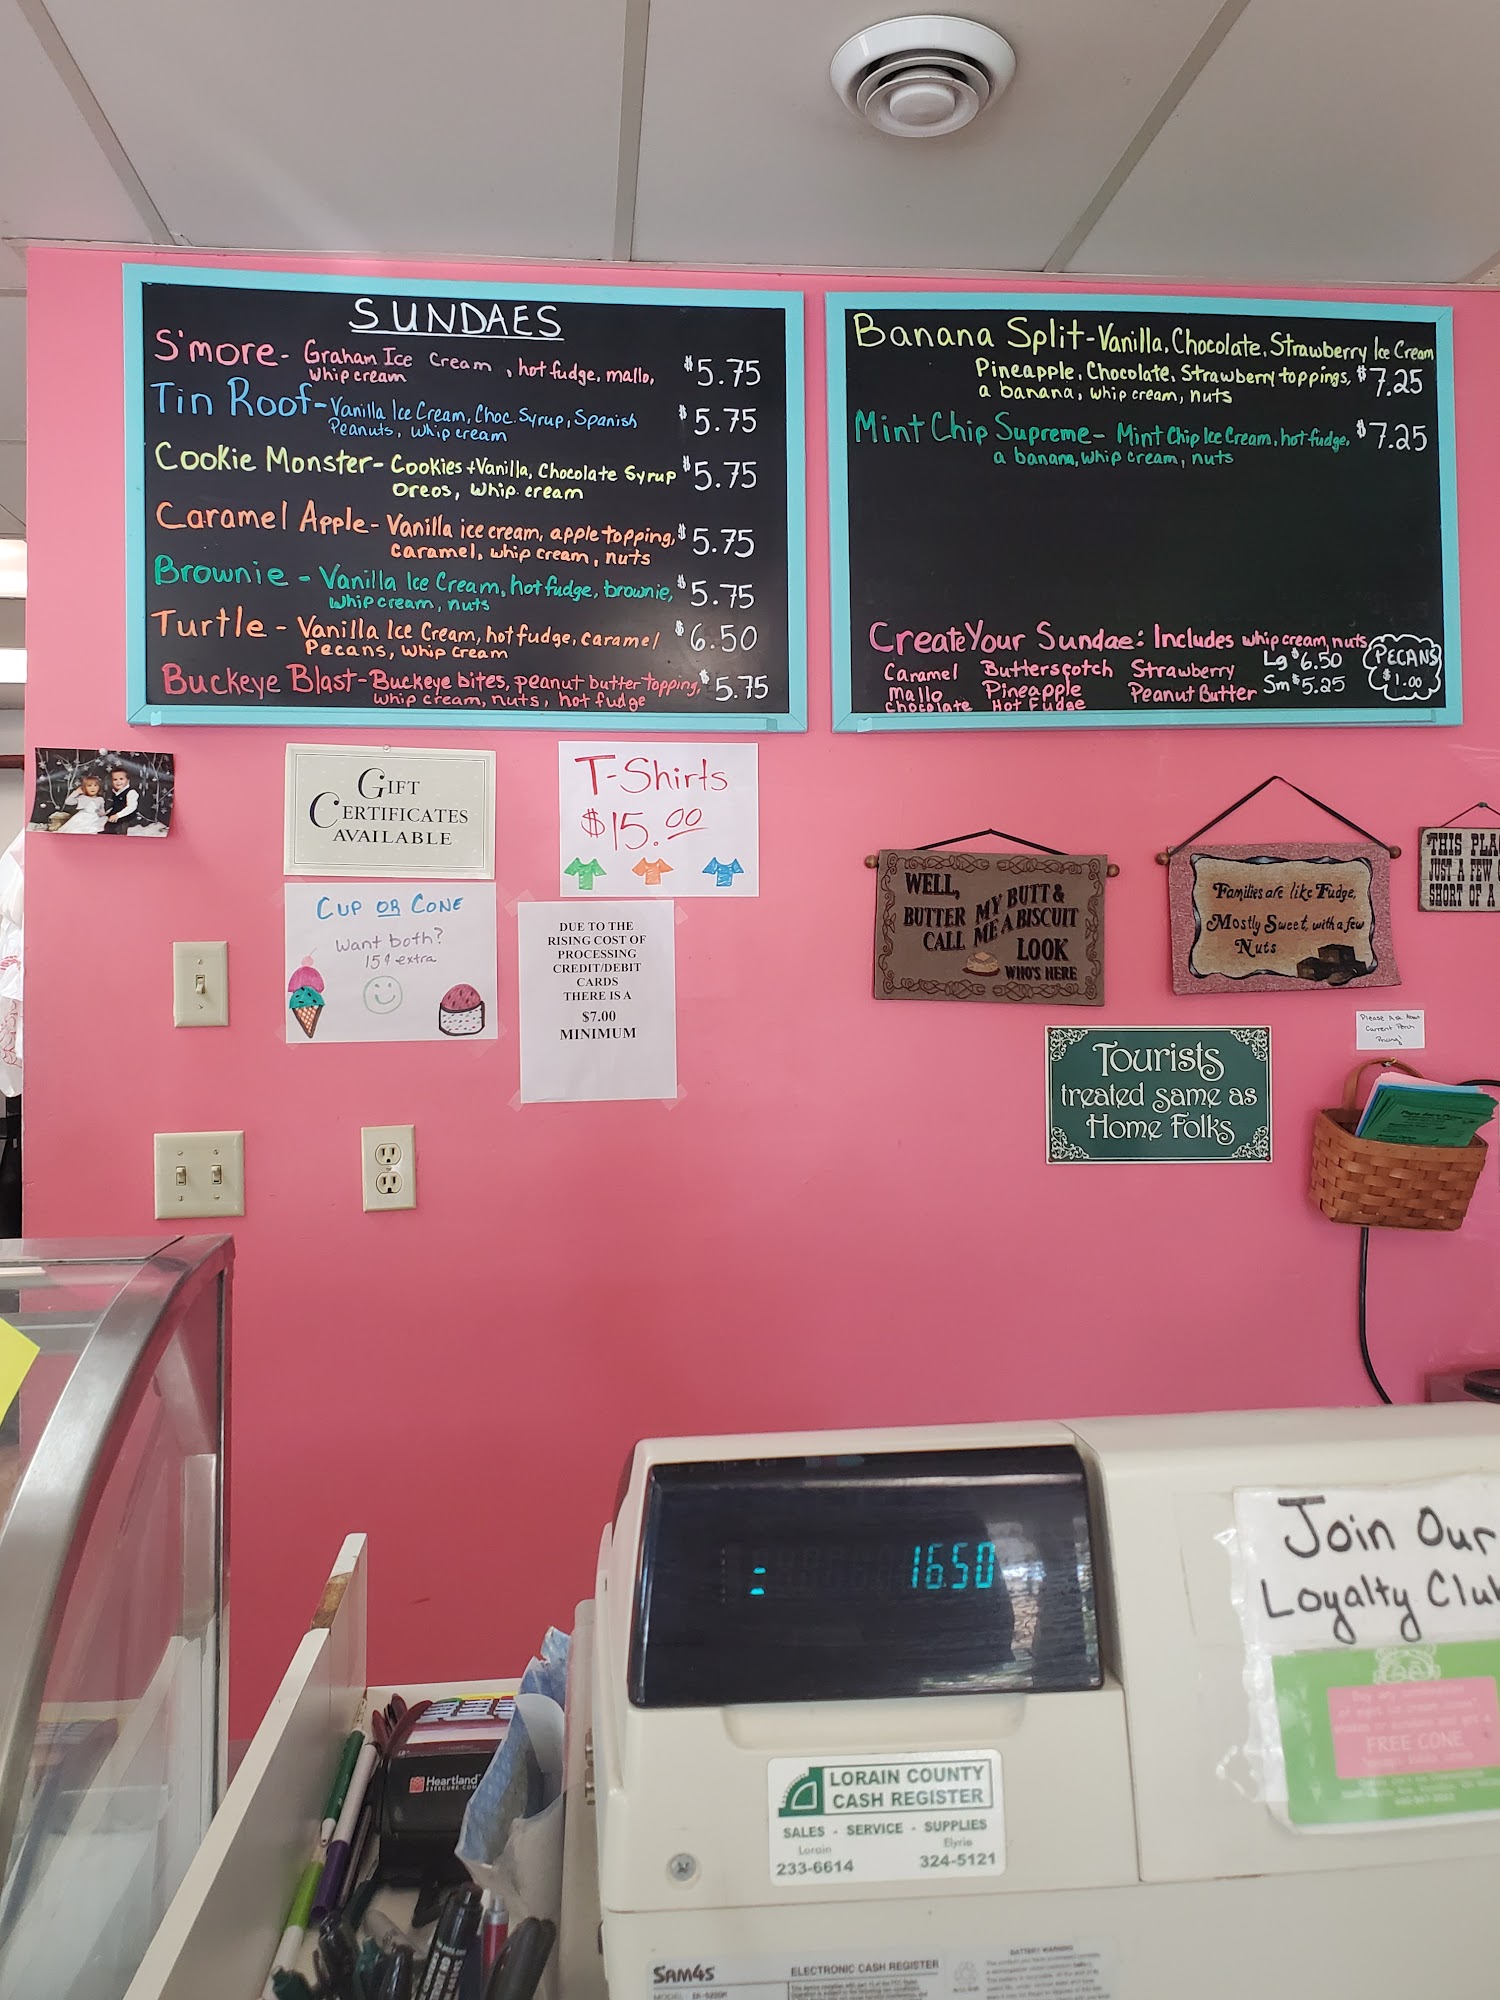 SUNDAES
S'more - Graham Ice Cream, hot fudge, mallo, $5.75
whip cream
Tin Roof - Vanilla Ice Cream, Choc. Syrup, Spanish $5.75
Peanuts, whip cream
Cookie Monster - Cookies + Vanilla, Chocolate Syrup $5.75
Oreos, whip cream
Caramel Apple - Vanilla ice cream, apple topping, $5.75
caramel, whip cream, nuts
Brownie - Vanilla Ice Cream, hot fudge, brownie, $5.75
whip cream, nuts
Turtle - Vanilla Ice Cream, hot fudge, caramel $6.50
Pecans, whip cream
Buckeye Blast - Buckeye bites, peanut butter topping, $5.75
whip cream, nuts, hot fudge
Banana Split - Vanilla, Chocolate, Strawberry Ice Cream
Pineapple, Chocolate, Strawberry toppings, $7.25
a banana, whip cream, nuts
Mint Chip Supreme - Mint Chip Ice Cream, hot fudge, $7.25
a banana, whip cream, nuts
Create Your Sundae: Includes whip cream, nuts
Caramel Butterscotch Strawberry Lg $6.50
Mallo Pineapple Peanut Butter Sm $5.25
Chocolate Hot Fudge
PECANS
$1.00
GIFT
CERTIFICATES
AVAILABLE
T-Shirts
$15.00
CUP OR CONE
Want both?
15¢ extra
DUE TO THE
RISING COST OF
PROCESSING
CREDIT/DEBIT
CARDS
THERE IS A
$7.00
MINIMUM
WELL,
BUTTER MY BUTT &
CALL ME A BISCUIT
LOOK
WHO'S HERE
Families are like Fudge,
Mostly Sweet, with a few
Nuts
THIS PLA
JUST A FEW
SHORT OF A
Tourists
treated same as
Home Folks
Please Ask About
Current Perch
Pricing
16.50
Join Our
Loyalty Clu
FREE CONE
Heartland
LORAIN COUNTY
CASH REGISTER
SALES - SERVICE - SUPPLIES
Lorain Elyria
233-6614 324-5121
SAM4S
ELECTRONIC CASH REGISTER
MODEL
BATTERY WARNING